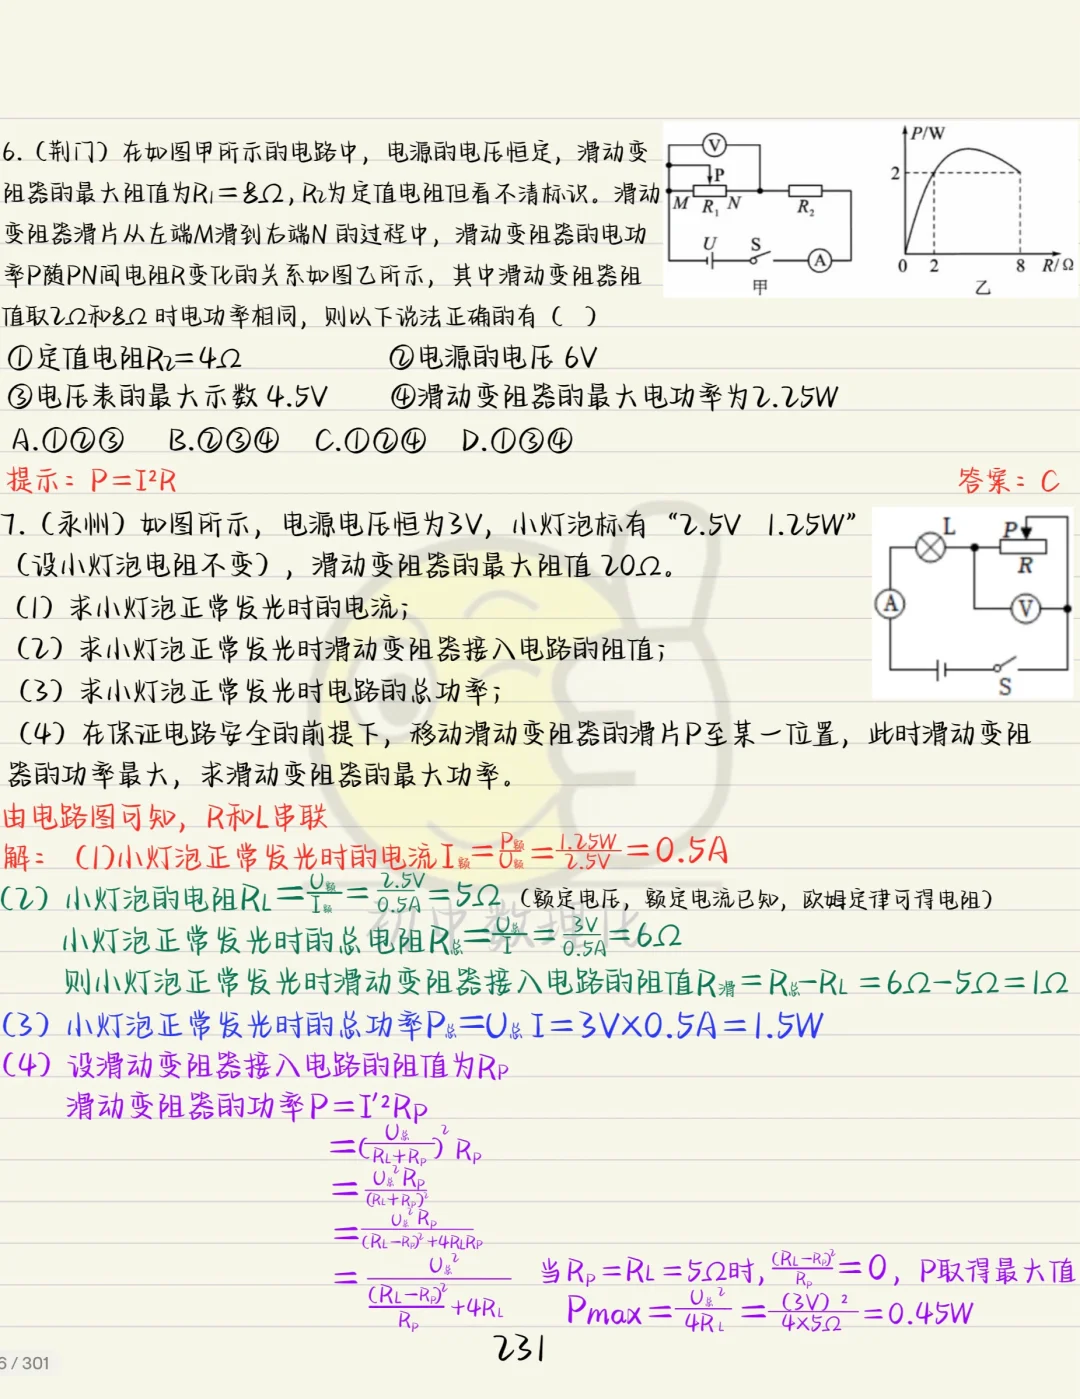 6.（荆门）在如图甲所示的电路中，电源的电压恒定，滑动变
阻器的最大阻值为R₁＝8Ω，R₂为定值电阻但看不清标识。滑动
变阻器滑片从左端M滑到右端N的过程中，滑动变阻器的电功
率P随PN间电阻R变化的关系如图乙所示，其中滑动变阻器阻
值取2Ω和8Ω时电功率相同，则以下说法正确的有（ ）
V
P
M R₁ N R₂
U S
A
甲
P/W
2
0 2 8 R/Ω
乙
①定值电阻R₂＝4Ω ②电源的电压 6V
③电压表的最大示数 4.5V ④滑动变阻器的最大电功率为2.25W
A.①②③ B.②③④ C.①②④ D.①③④
提示：P＝I²R 答案：C
7.（永州）如图所示，电源电压恒为3V，小灯泡标有“2.5V 1.25W”
（设小灯泡电阻不变），滑动变阻器的最大阻值20Ω。
（1）求小灯泡正常发光时的电流；
（2）求小灯泡正常发光时滑动变阻器接入电路的阻值；
（3）求小灯泡正常发光时电路的总功率；
（4）在保证电路安全的前提下，移动滑动变阻器的滑片P至某一位置，此时滑动变阻
器的功率最大，求滑动变阻器的最大功率。
L P
R
A V
S
由电路图可知，R和L串联
解：（1）小灯泡正常发光时的电流I额＝P额/U额＝1.25W/2.5V＝0.5A
（2）小灯泡的电阻RL＝U额/I额＝2.5V/0.5A＝5Ω（额定电压，额定电流已知，欧姆定律可得电阻）
小灯泡正常发光时的总电阻R总＝U总/I＝3V/0.5A＝6Ω
则小灯泡正常发光时滑动变阻器接入电路的阻值R滑＝R总－RL＝6Ω－5Ω＝1Ω
（3）小灯泡正常发光时的总功率P总＝U总I＝3V×0.5A＝1.5W
（4）设滑动变阻器接入电路的阻值为RP
滑动变阻器的功率P＝I'²RP
＝(U总/(RL+RP))²RP
＝U总²RP/(RL+RP)²
＝U总²RP/((RL－RP)²+4RLRP)
＝U总²/((RL－RP)²/RP+4RL) 当RP＝RL＝5Ω时，(RL－RP)²/RP＝0，P取得最大值
Pmax＝U总²/4RL＝(3V)²/4×5Ω＝0.45W
初中数理化
231
6 / 301